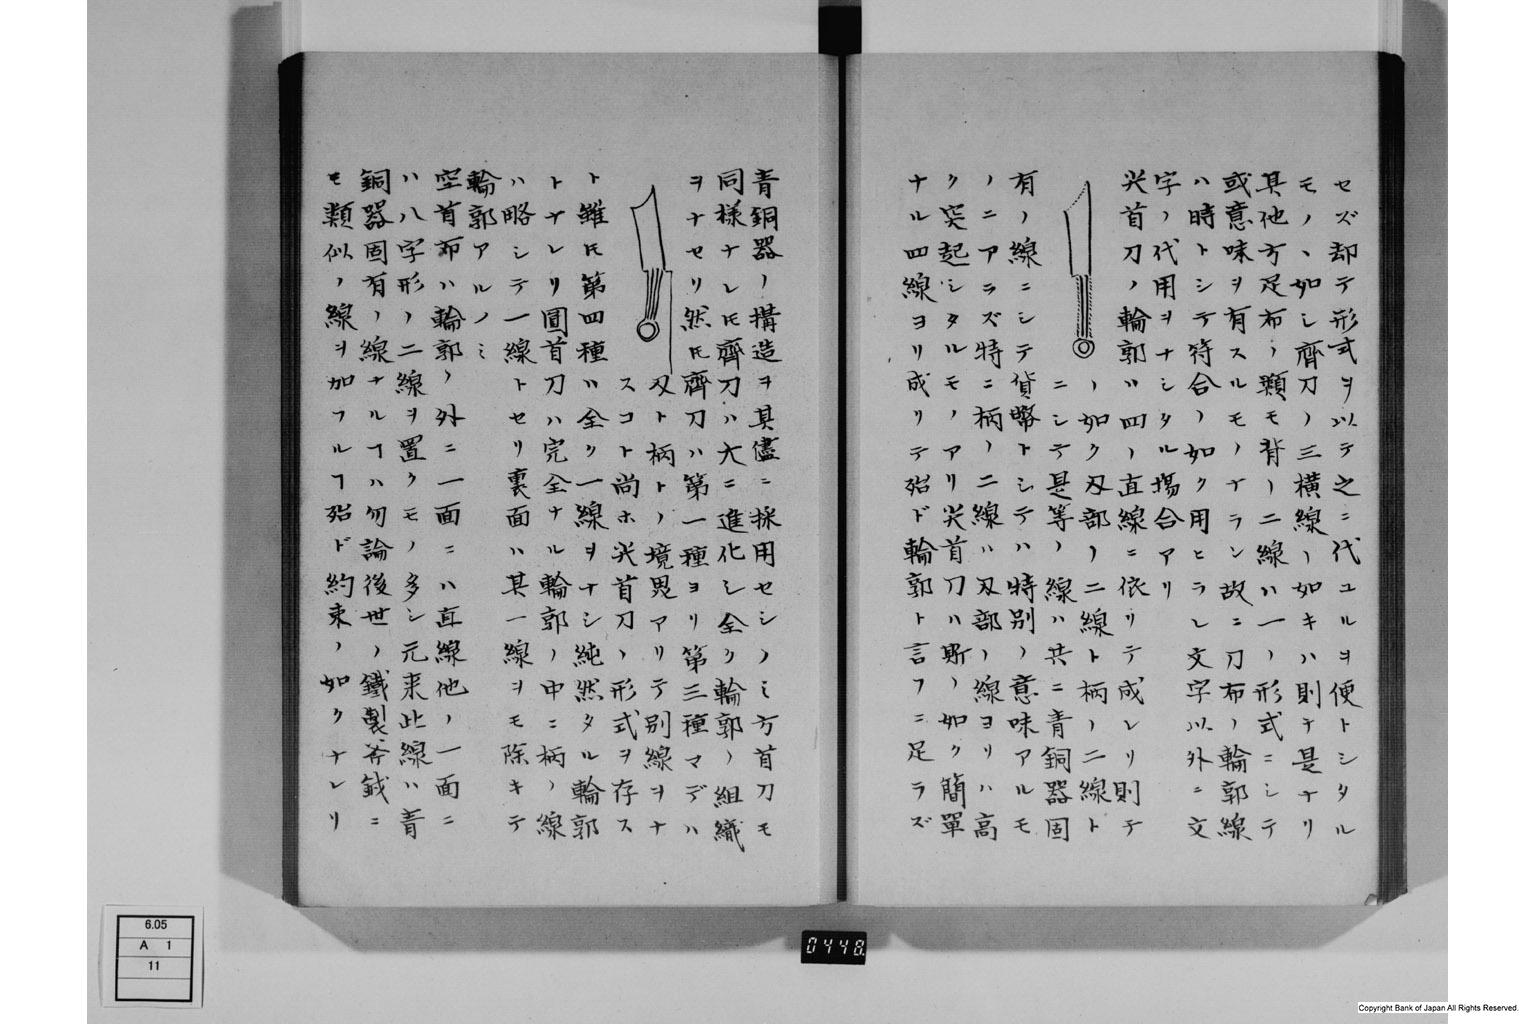 セズ却テ形式ヲ以テ之ニ代ユルヲ便トシタル
モノヽ如シ齊刀ノ三横線ノ如キハ則チ是ナリ
其他方足布ノ類モ背ノ二線ハ一ノ形式ニシテ
或意味ヲ有スルモノナラン故ニ刀布ノ輪郭線
ハ時トシテ符合ノ如ク用ヒラレ文字以外ニ文
字ノ代用ヲナシタル場合アリ
尖首刀ノ輪郭ハ四ノ直線ニ依リテ成レリ則チ
ノ如ク刄部ノ二線ト柄ノ二線ト
ニシテ是等ノ線ハ共ニ青銅器固
有ノ線ニシテ貨幣トシテハ特別ノ意味アルモ
ノニアラズ特ニ柄ノ二線ハ刄部ノ線ヨリハ高
ク突起シタルモノアリ尖首刀ハ斯ノ如ク簡單
ナル四線ヨリ成リテ殆ド輪郭ト言フニ足ラズ
青銅器ノ搆造ヲ其儘ニ採用セシノミ方首刀モ
同様ナレ𪜈齊刀ハ大ニ進化シ全ク輪郭ノ組織
ヲナセリ然𪜈齊刀ハ第一種ヨリ第三種マデハ
刄ト柄トノ境界アリテ別線ヲナ
スコト尚ホ尖首刀ノ形式ヲ存ス
ト雖𪜈第四種ハ全ク一線ヲナシ純然タル輪郭
トナレリ圓首刀ハ完全ナル輪郭ノ中ニ柄ノ線
ハ略シテ一線トセリ裏面ハ其一線ヲモ除キテ
輪郭アルノミ
空首布ハ輪郭ノ外ニ一面ニハ直線他ノ一面ニ
ハ八字形ノ二線ヲ置クモノ多シ元来此線ハ青
銅器固有ノ線ナルヿハ勿論後世ノ鐵製斧鉞ニ
モ類似ノ線ヲ加フルヿ殆ド約束ノ如クナレリ
6.05
A 1
11
0448
Copyright Bank of Japan All Rights Reserved.